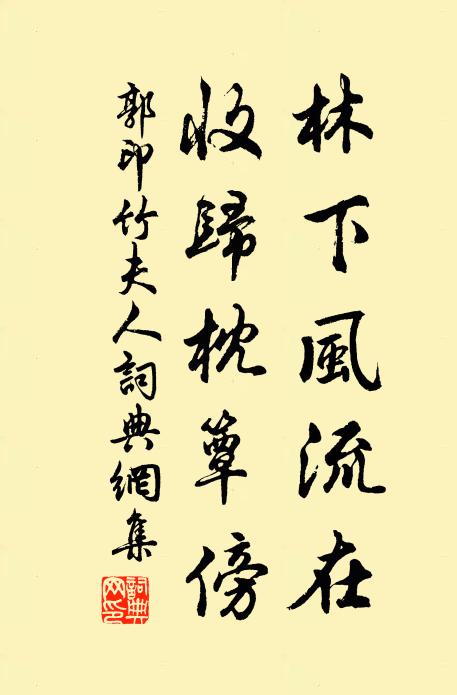 林下風流在
收歸枕簟傍
郭印竹夫人詞典網集
詞典网印